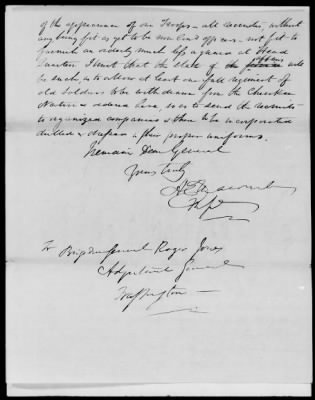 of the appearance of our Troops – all recruits, without
any being fit as yet to be non Com'd officers, nor fit to
furnish an orderly much less a guard at Head
Quarters. I trust that the state of affairs will
be such, as to allow at least one full regiment of
old Soldiers to be withdrawn from the Cherokee
Nation & ordered here, so as to send the recruits
to organized companies & then to be incorporated
drilled & dressed in their proper uniforms.
I remain Dear General
Yours truly
To Brigadier General Roger Jones
Adjutant General
Washington